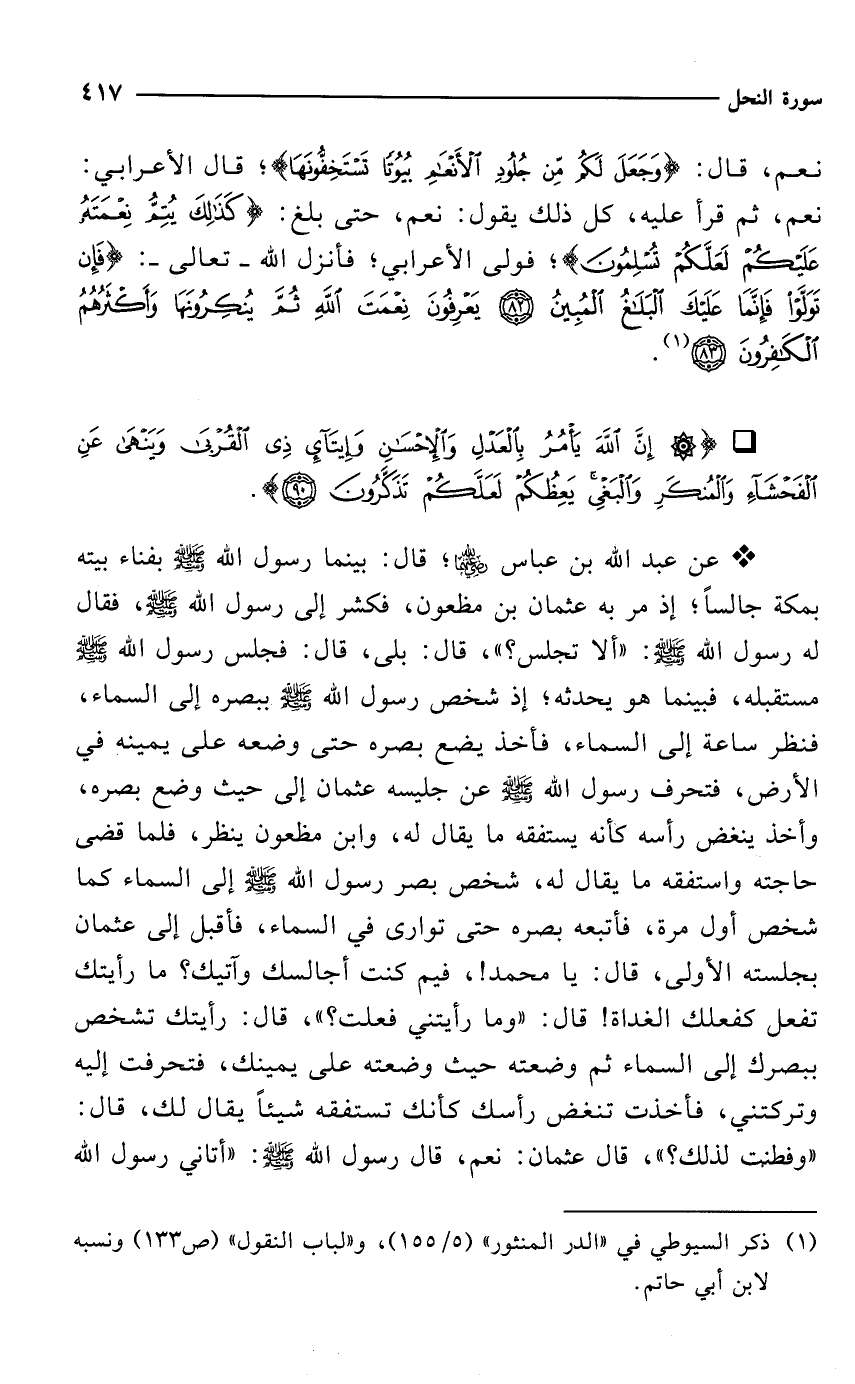 سورة النحل ٤١٧
نعم، قال: ﴿وَجَعَلَ لَكُم مِّن جُلُودِ ٱلْأَنْعَٰمِ بُيُوتًا تَسْتَخِفُّونَهَا﴾؛ قال الأعرابي:
نعم، ثم قرأ عليه، كل ذلك يقول: نعم، حتى بلغ: ﴿كَذَٰلِكَ يُتِمُّ نِعْمَتَهُۥ
عَلَيْكُمْ لَعَلَّكُمْ تُسْلِمُونَ﴾؛ فولى الأعرابي؛ فأنزل الله ـ تعالى ـ: ﴿فَإِن
تَوَلَّوْا۟ فَإِنَّمَا عَلَيْكَ ٱلْبَلَٰغُ ٱلْمُبِينُ ﴿٨٢﴾ يَعْرِفُونَ نِعْمَتَ ٱللَّهِ ثُمَّ يُنكِرُونَهَا وَأَكْثَرُهُمُ
ٱلْكَٰفِرُونَ ﴿٨٣﴾(١).
❑ ﴿۞ إِنَّ ٱللَّهَ يَأْمُرُ بِٱلْعَدْلِ وَٱلْإِحْسَٰنِ وَإِيتَآئِ ذِى ٱلْقُرْبَىٰ وَيَنْهَىٰ عَنِ
ٱلْفَحْشَآءِ وَٱلْمُنكَرِ وَٱلْبَغْىِ ۚ يَعِظُكُمْ لَعَلَّكُمْ تَذَكَّرُونَ ﴿٩٠﴾﴾.
❖ عن عبد الله بن عباس رضي الله عنهما؛ قال: بينما رسول الله ﷺ بفناء بيته
بمكة جالساً؛ إذ مر به عثمان بن مظعون، فكشر إلى رسول الله ﷺ، فقال
له رسول الله ﷺ: «ألا تجلس؟»، قال: بلى، قال: فجلس رسول الله ﷺ
مستقبله، فبينما هو يحدثه؛ إذ شخص رسول الله ﷺ ببصره إلى السماء،
فنظر ساعة إلى السماء، فأخذ يضع بصره حتى وضعه على يمينه في
الأرض، فتحرف رسول الله ﷺ عن جليسه عثمان إلى حيث وضع بصره،
وأخذ ينغض رأسه كأنه يستفقه ما يقال له، وابن مظعون ينظر، فلما قضى
حاجته واستفقه ما يقال له، شخص بصر رسول الله ﷺ إلى السماء كما
شخص أول مرة، فأتبعه بصره حتى توارى في السماء، فأقبل إلى عثمان
بجلسته الأولى، قال: يا محمد!، فيم كنت أجالسك وآتيك؟ ما رأيتك
تفعل كفعلك الغداة! قال: «وما رأيتني فعلت؟»، قال: رأيتك تشخص
ببصرك إلى السماء ثم وضعته حيث وضعته على يمينك، فتحرفت إليه
وتركتني، فأخذت تنغض رأسك كأنك تستفقه شيئاً يقال لك، قال:
«وفطنت لذلك؟»، قال عثمان: نعم، قال رسول الله ﷺ: «أتاني رسول الله
(١) ذكر السيوطي في «الدر المنثور» (٥/ ١٥٥)، و«لباب النقول» (ص١٣٣) ونسبه
لابن أبي حاتم.